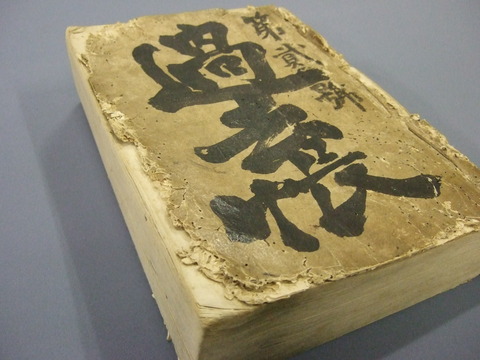 第貳號
過去帳